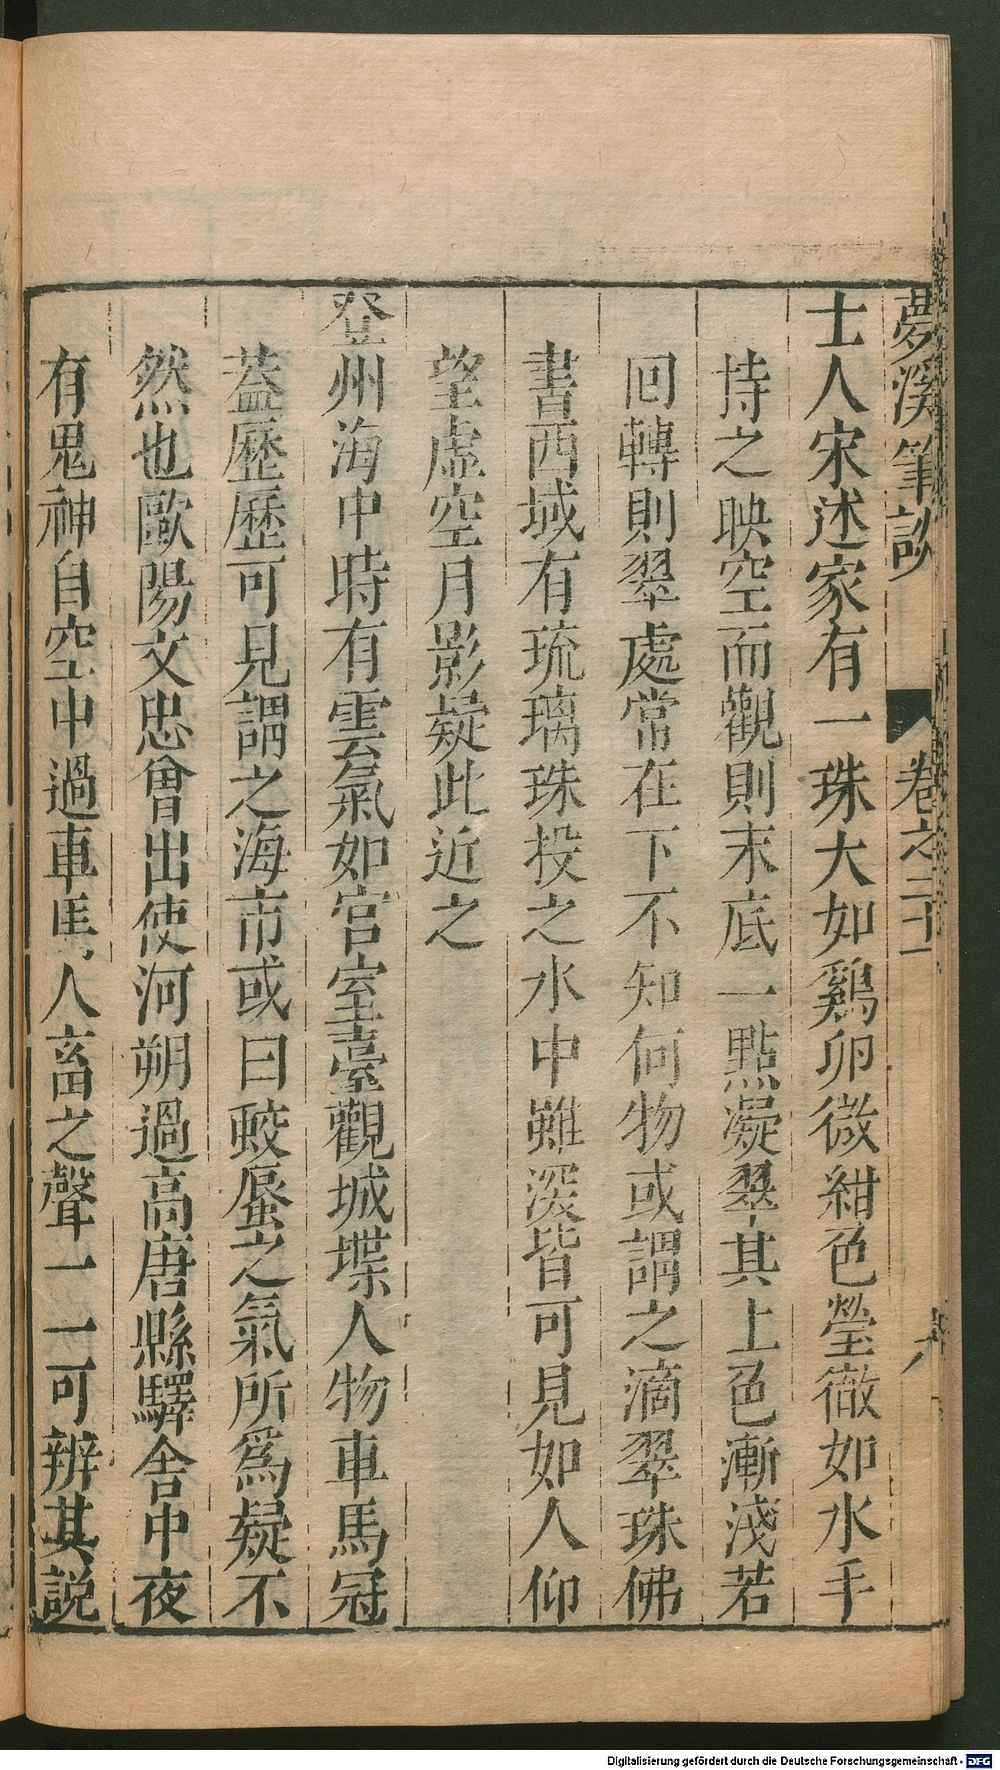 夢溪筆談 卷之二十一
士人宋述家有一珠大如鷄卵微紺色瑩徹如水手
持之映空而觀則末底一點凝翠其上色漸淺若
回轉則翠處常在下不知何物或謂之滴翠珠佛
書西域有琉璃珠投之水中雖深皆可見如人仰
望虛空月影疑此近之
登州海中時有雲氣如宮室臺觀城堞人物車馬冠
蓋歷歷可見謂之海市或曰蛟蜃之氣所爲疑不
然也歐陽文忠曾出使河朔過高唐縣驛舍中夜
有鬼神自空中過車馬人畜之聲一一可辨其說
Digitalisierung gefördert durch die Deutsche Forschungsgemeinschaft - DFG